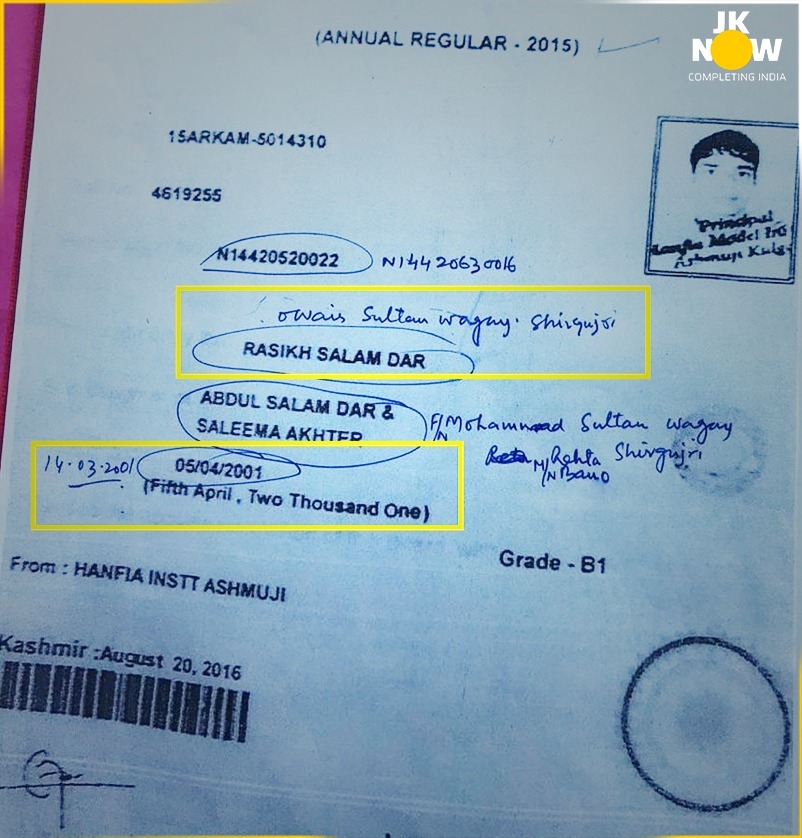 JK
NOW
COMPLETING INDIA
(ANNUAL REGULAR - 2015)
15ARKAM-5014310
4619255
Principal
Model
N14420520022 N14420630016
owais Sultan wagay. Shirgujri
RASIKH SALAM DAR
ABDUL SALAM DAR &
SALEEMA AKHTER
F/N Mohammad Sultan wagay
Shirgujri
M/N Rehta Bano
14.03.2001 05/04/2001
(Fifth April, Two Thousand One)
Grade - B1
From : HANFIA INSTT ASHMUJI
Kashmir :August 20, 2016